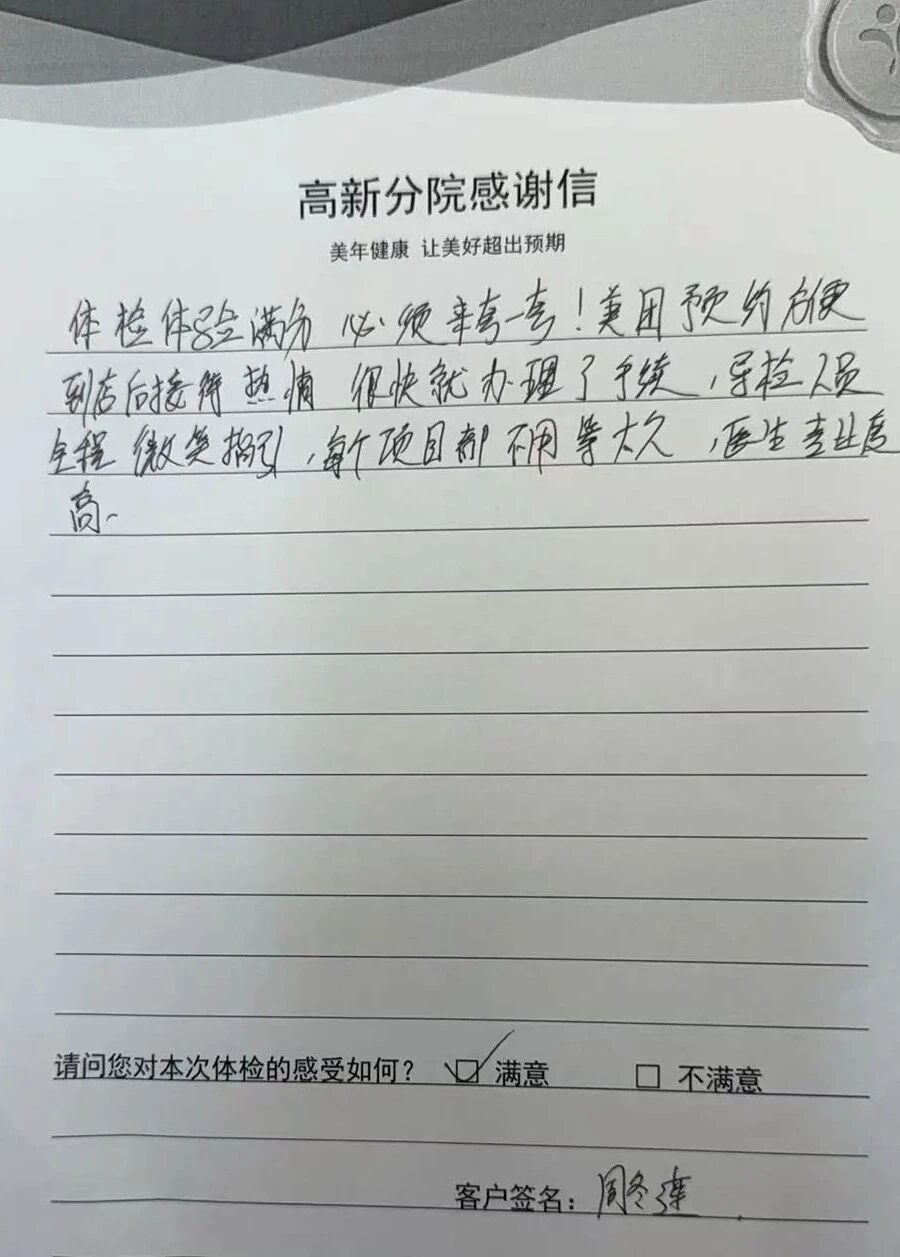 高新分院感谢信
美年健康 让美好超出预期
体检体验满分 必须来夸一夸！美团预约方便
到店后接待热情 很快就办理了手续，导检人员
全程微笑指引，每个项目都不用等太久，医生专业度
高.
请问您对本次体检的感受如何？ 满意 不满意
客户签名：周冬莲